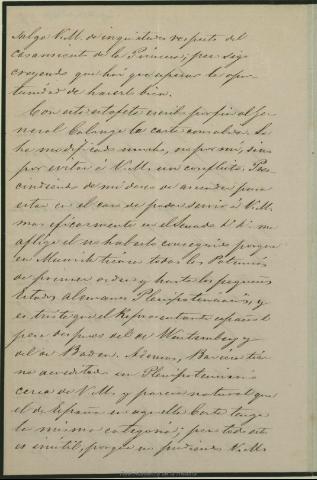 salga V.M. de inquietudes respecto del
casamiento de la Princesa; pero sigo
creyendo que hay que esperar la opor-
tunidad de hacerlo bien.
Con esta estafeta escribo por fin al Ge-
neral Calonge la carta consabida. La
he modificado mucho, no por mí, sino
por evitar á V.M. un conflicto. Pres-
cindiendo de mi deseo de ascender para
estar en el caso de poder servir á V.M.
mas eficazmente en el Senado &. &. me
aflige el no haberlo conseguido porque
en Munich tienen todas las Potencias
de primer orden y hasta los pequeños
Estados alemanes Plenipotenciarios, y
es triste que el Representante español
pase despues del de Wurtemberg y
del de Baden. Ademas, Baviera tie-
ne acreditado un Plenipotenciario
cerca de V.M. y parece natural que
el de España en aquella Corte tenga
la misma categoría; pero todo esto
es inútil, porque no pudiendo V.M.